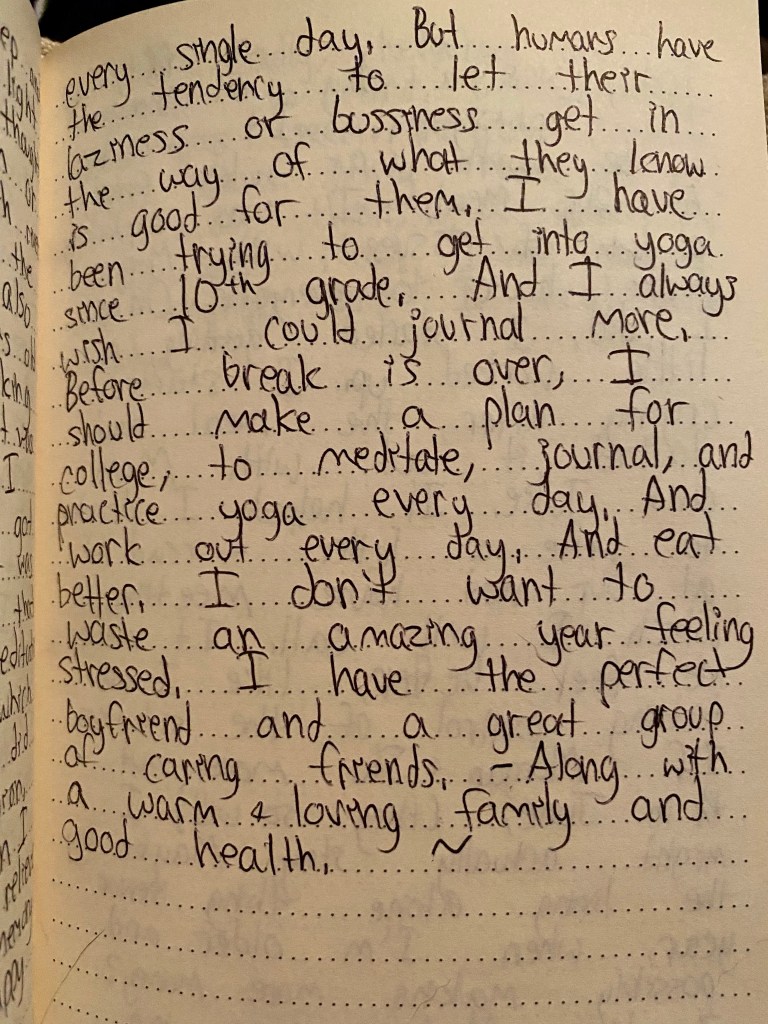 every single day. But humans have
the tendency to let their
laziness or bussiness get in
the way of what they know
is good for them. I have
been trying to get into yoga
since 10th grade. And I always
wish I could journal more.
Before break is over, I
should make a plan for
college, to meditate, journal, and
practice yoga every day. And
work out every day. And eat
better. I don't want to
waste an amazing year feeling
stressed. I have the perfect
boyfriend and a great group
of caring friends. - Along with
a warm & loving family and
good health. ~